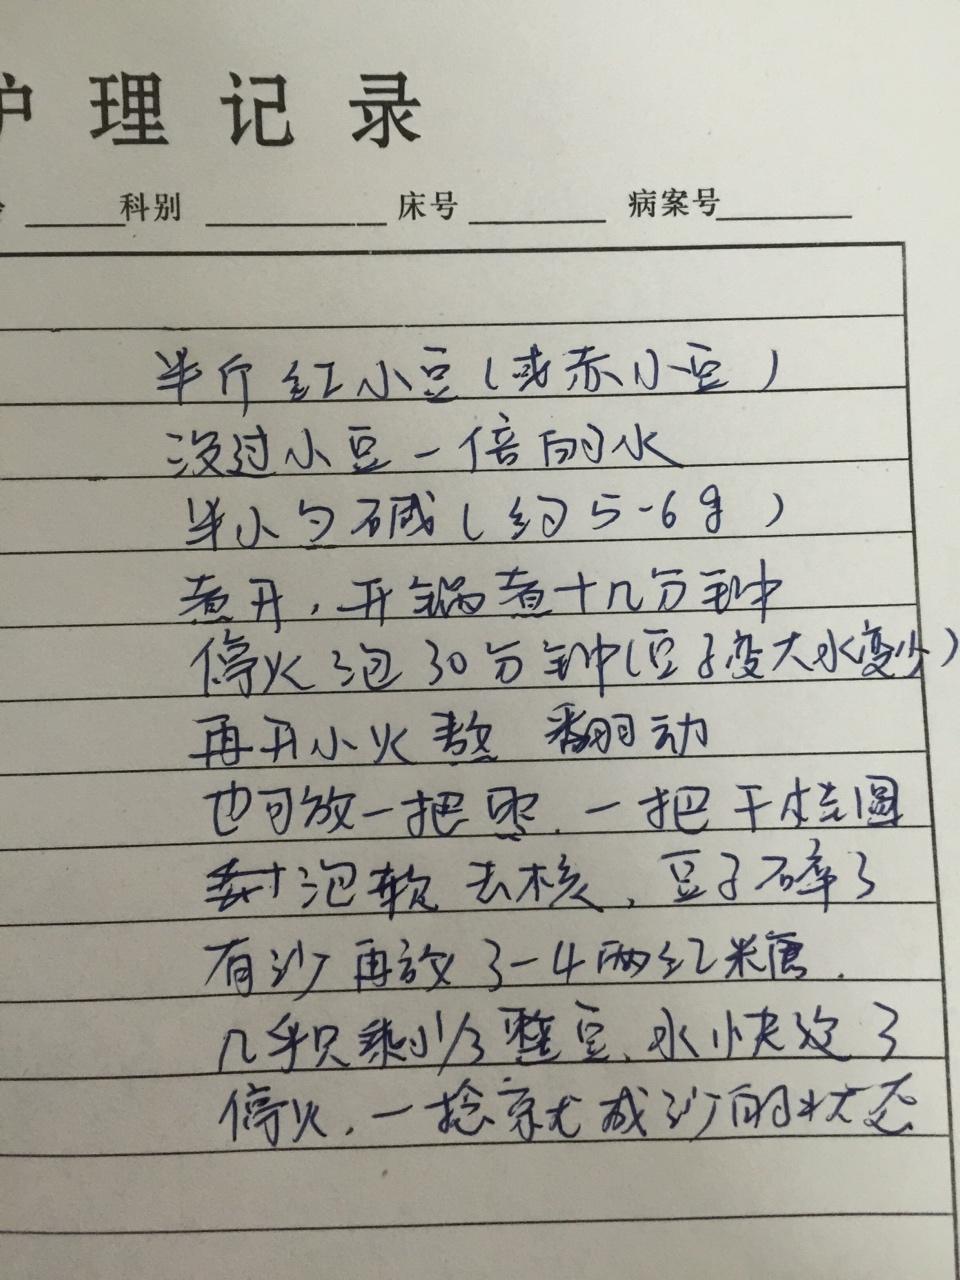 护理记录
科别 床号 病案号
半斤红小豆(或赤小豆)
没过小豆一倍的水
半小勺碱(约5-6g)
煮开,开锅煮十几分钟
停火泡30分钟(豆子变大水变少)
再开小火熬 翻动
也可放一把枣、一把干桂圆
泡软去核、豆子碎了
有沙再放3-4两红糖、
几乎只剩1/3整豆、水快没了
停火、一捻就成沙的状态